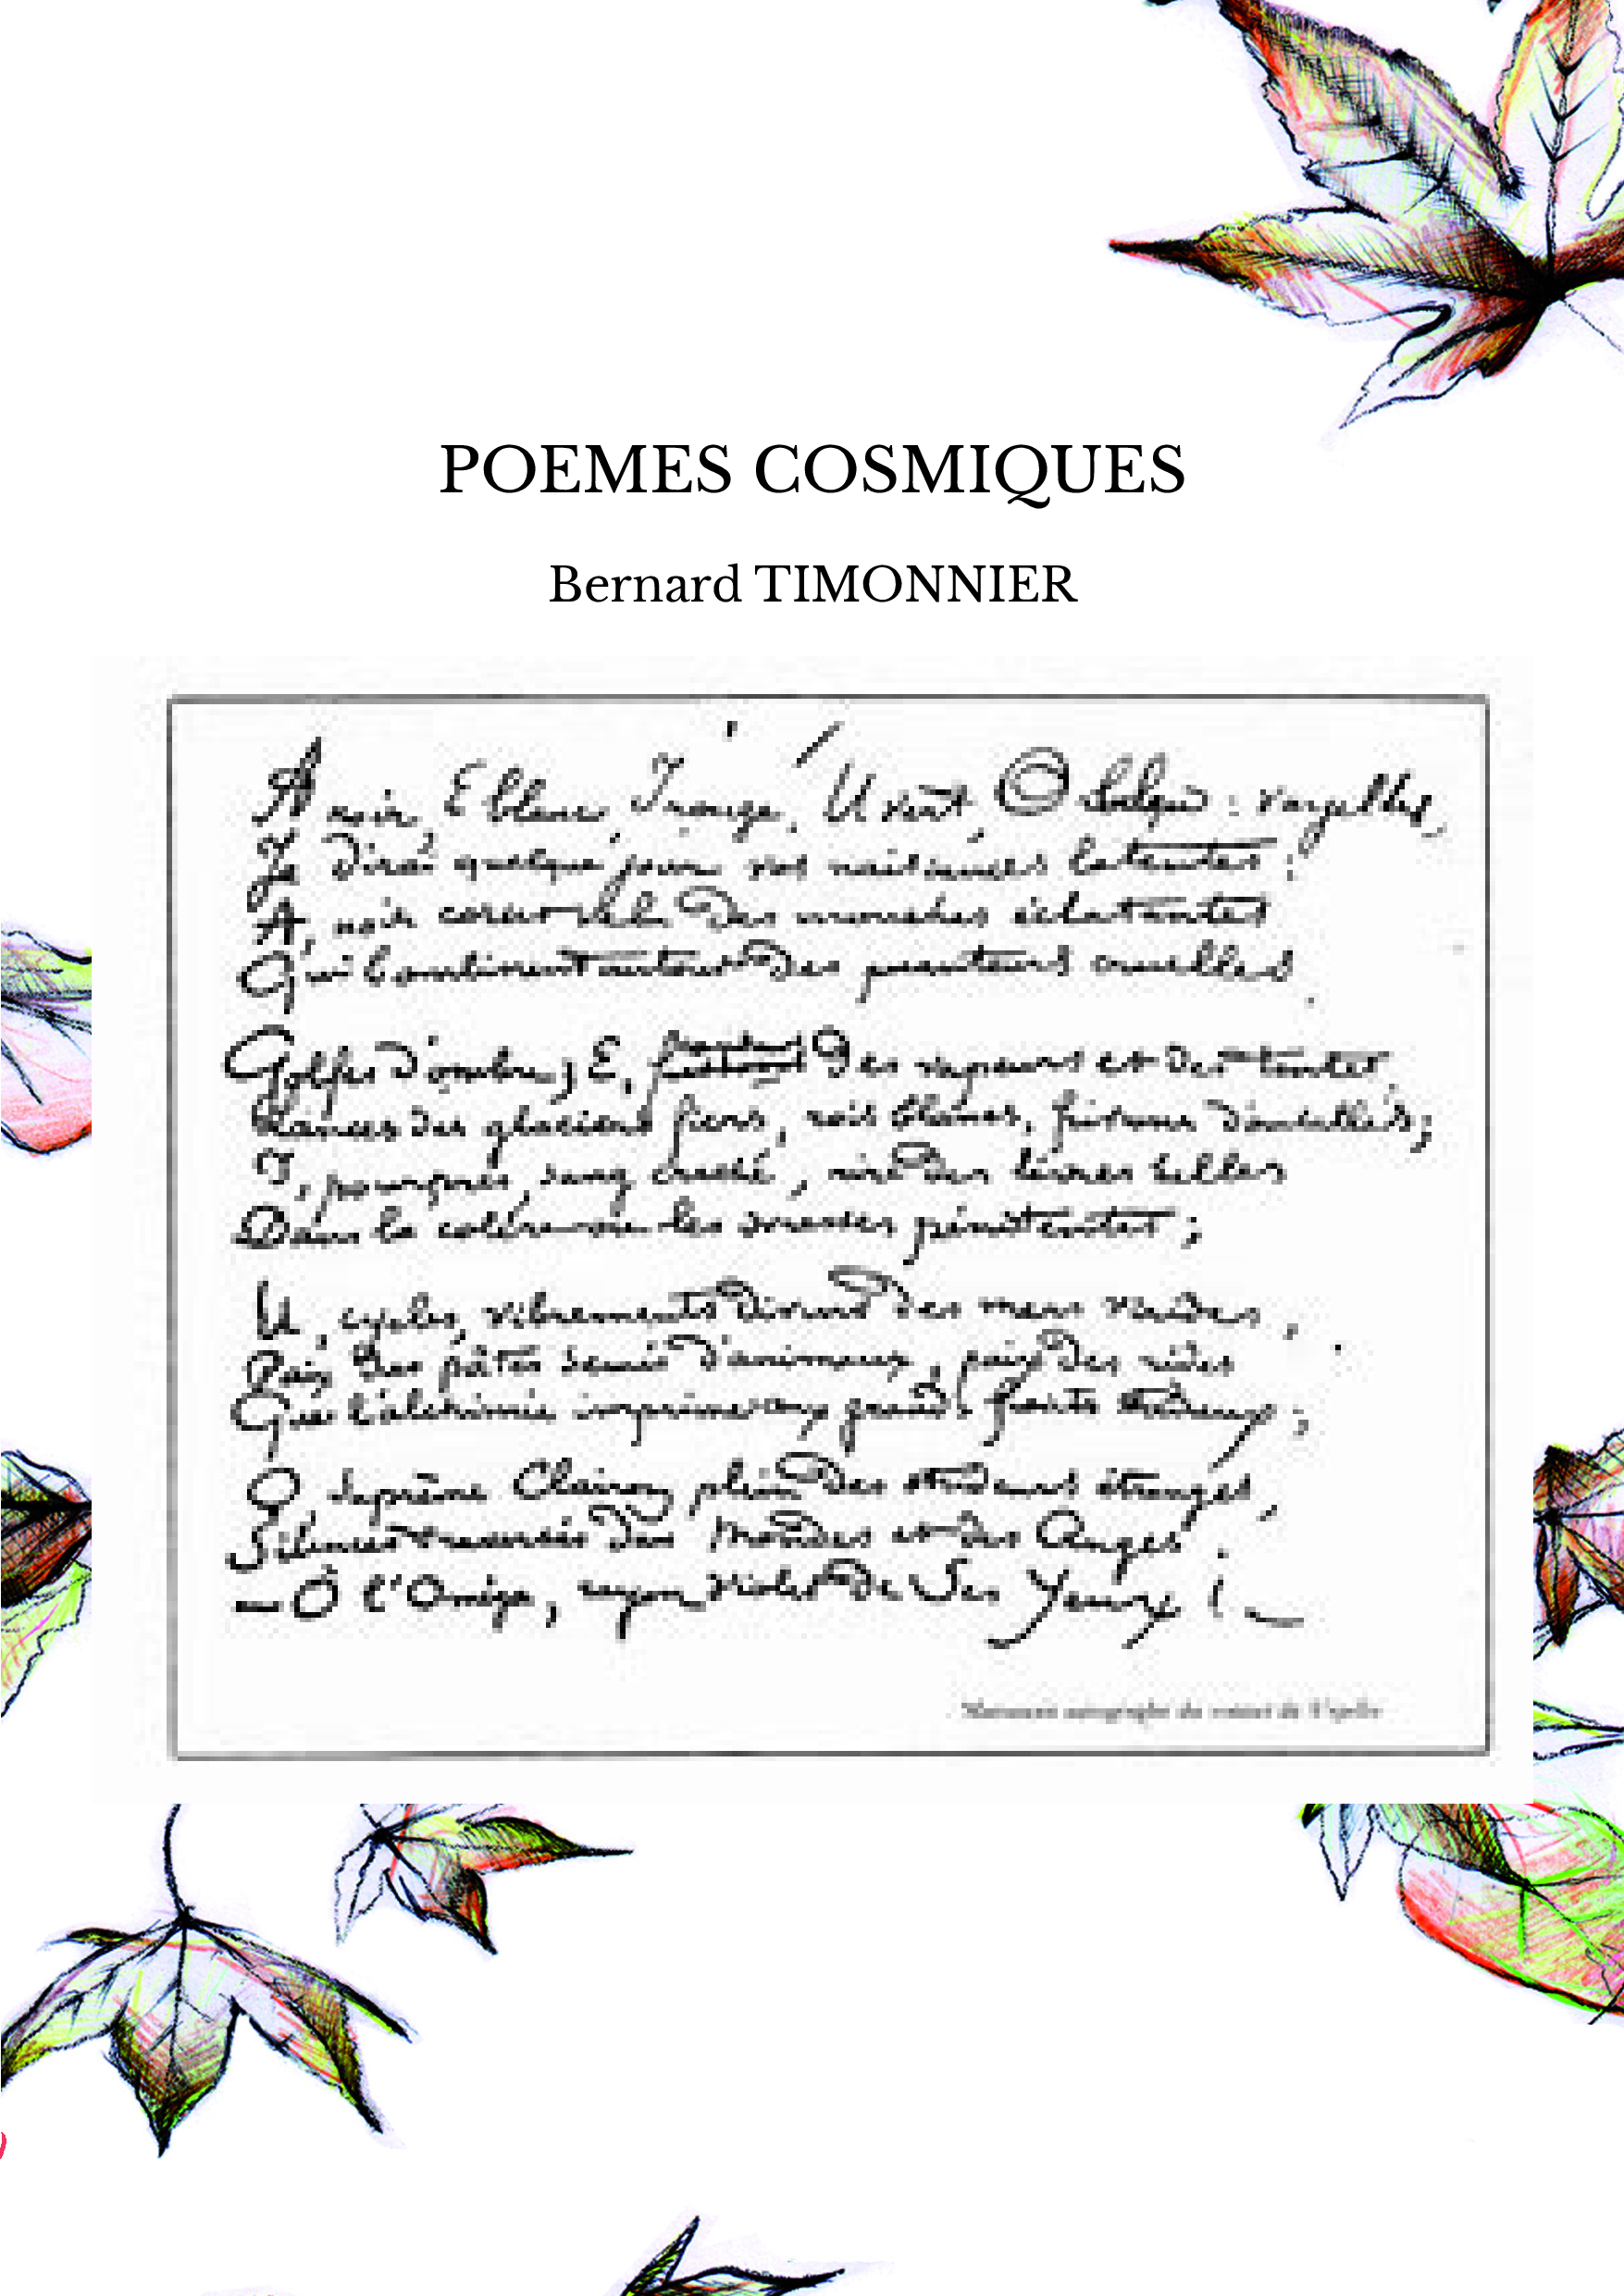 POEMES COSMIQUES
Bernard TIMONNIER
A noir, E blanc, I rouge, U vert, O bleu : voyelles,
Je dirai quelque jour vos naissances latentes :
A, noir corset velu des mouches éclatantes
Qui bombinent autour des puanteurs cruelles,
Golfes d'ombre ; E, frissons des vapeurs et des tentes,
Lances des glaciers fiers, rois blancs, frissons d'ombelles ;
I, pourpres, sang craché, rire des lèvres belles
Dans la colère ou les ivresses pénitentes ;
U, cycles, vibrements divins des mers virides,
Paix des pâtis semés d'animaux, paix des rides
Que l'alchimie imprime aux grands fronts studieux ;
O, suprême Clairon plein des strideurs étranges,
Silences traversés des Mondes et des Anges
– O l'Oméga, rayon violet de Ses Yeux ! –
Manuscrit autographe du sonnet de Voyelles